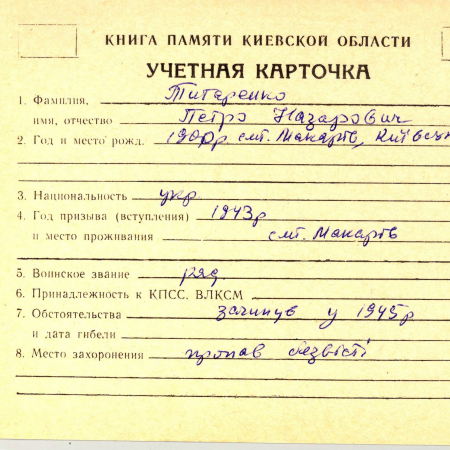 КНИГА ПАМЯТИ КИЕВСКОЙ ОБЛАСТИ
УЧЕТНАЯ КАРТОЧКА
1. Фамилия, Титаренко
имя, отчество Петро Назарович
2. Год и место рожд. смт. Макарів,
3. Национальность укр
4. Год призыва (вступления) 1943р
и место проживания смт. Макарів
5. Воинское звание ряд.
6. Принадлежность к КПСС. ВЛКСМ
7. Обстоятельства загинув у 1945р
и дата гибели
8. Место захоронения пропав безвісті